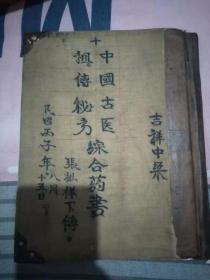 吉祥中集
十
中國古医
祖傳秘方
綜合药書
張振保下傳
民國丙子年八月
十五日